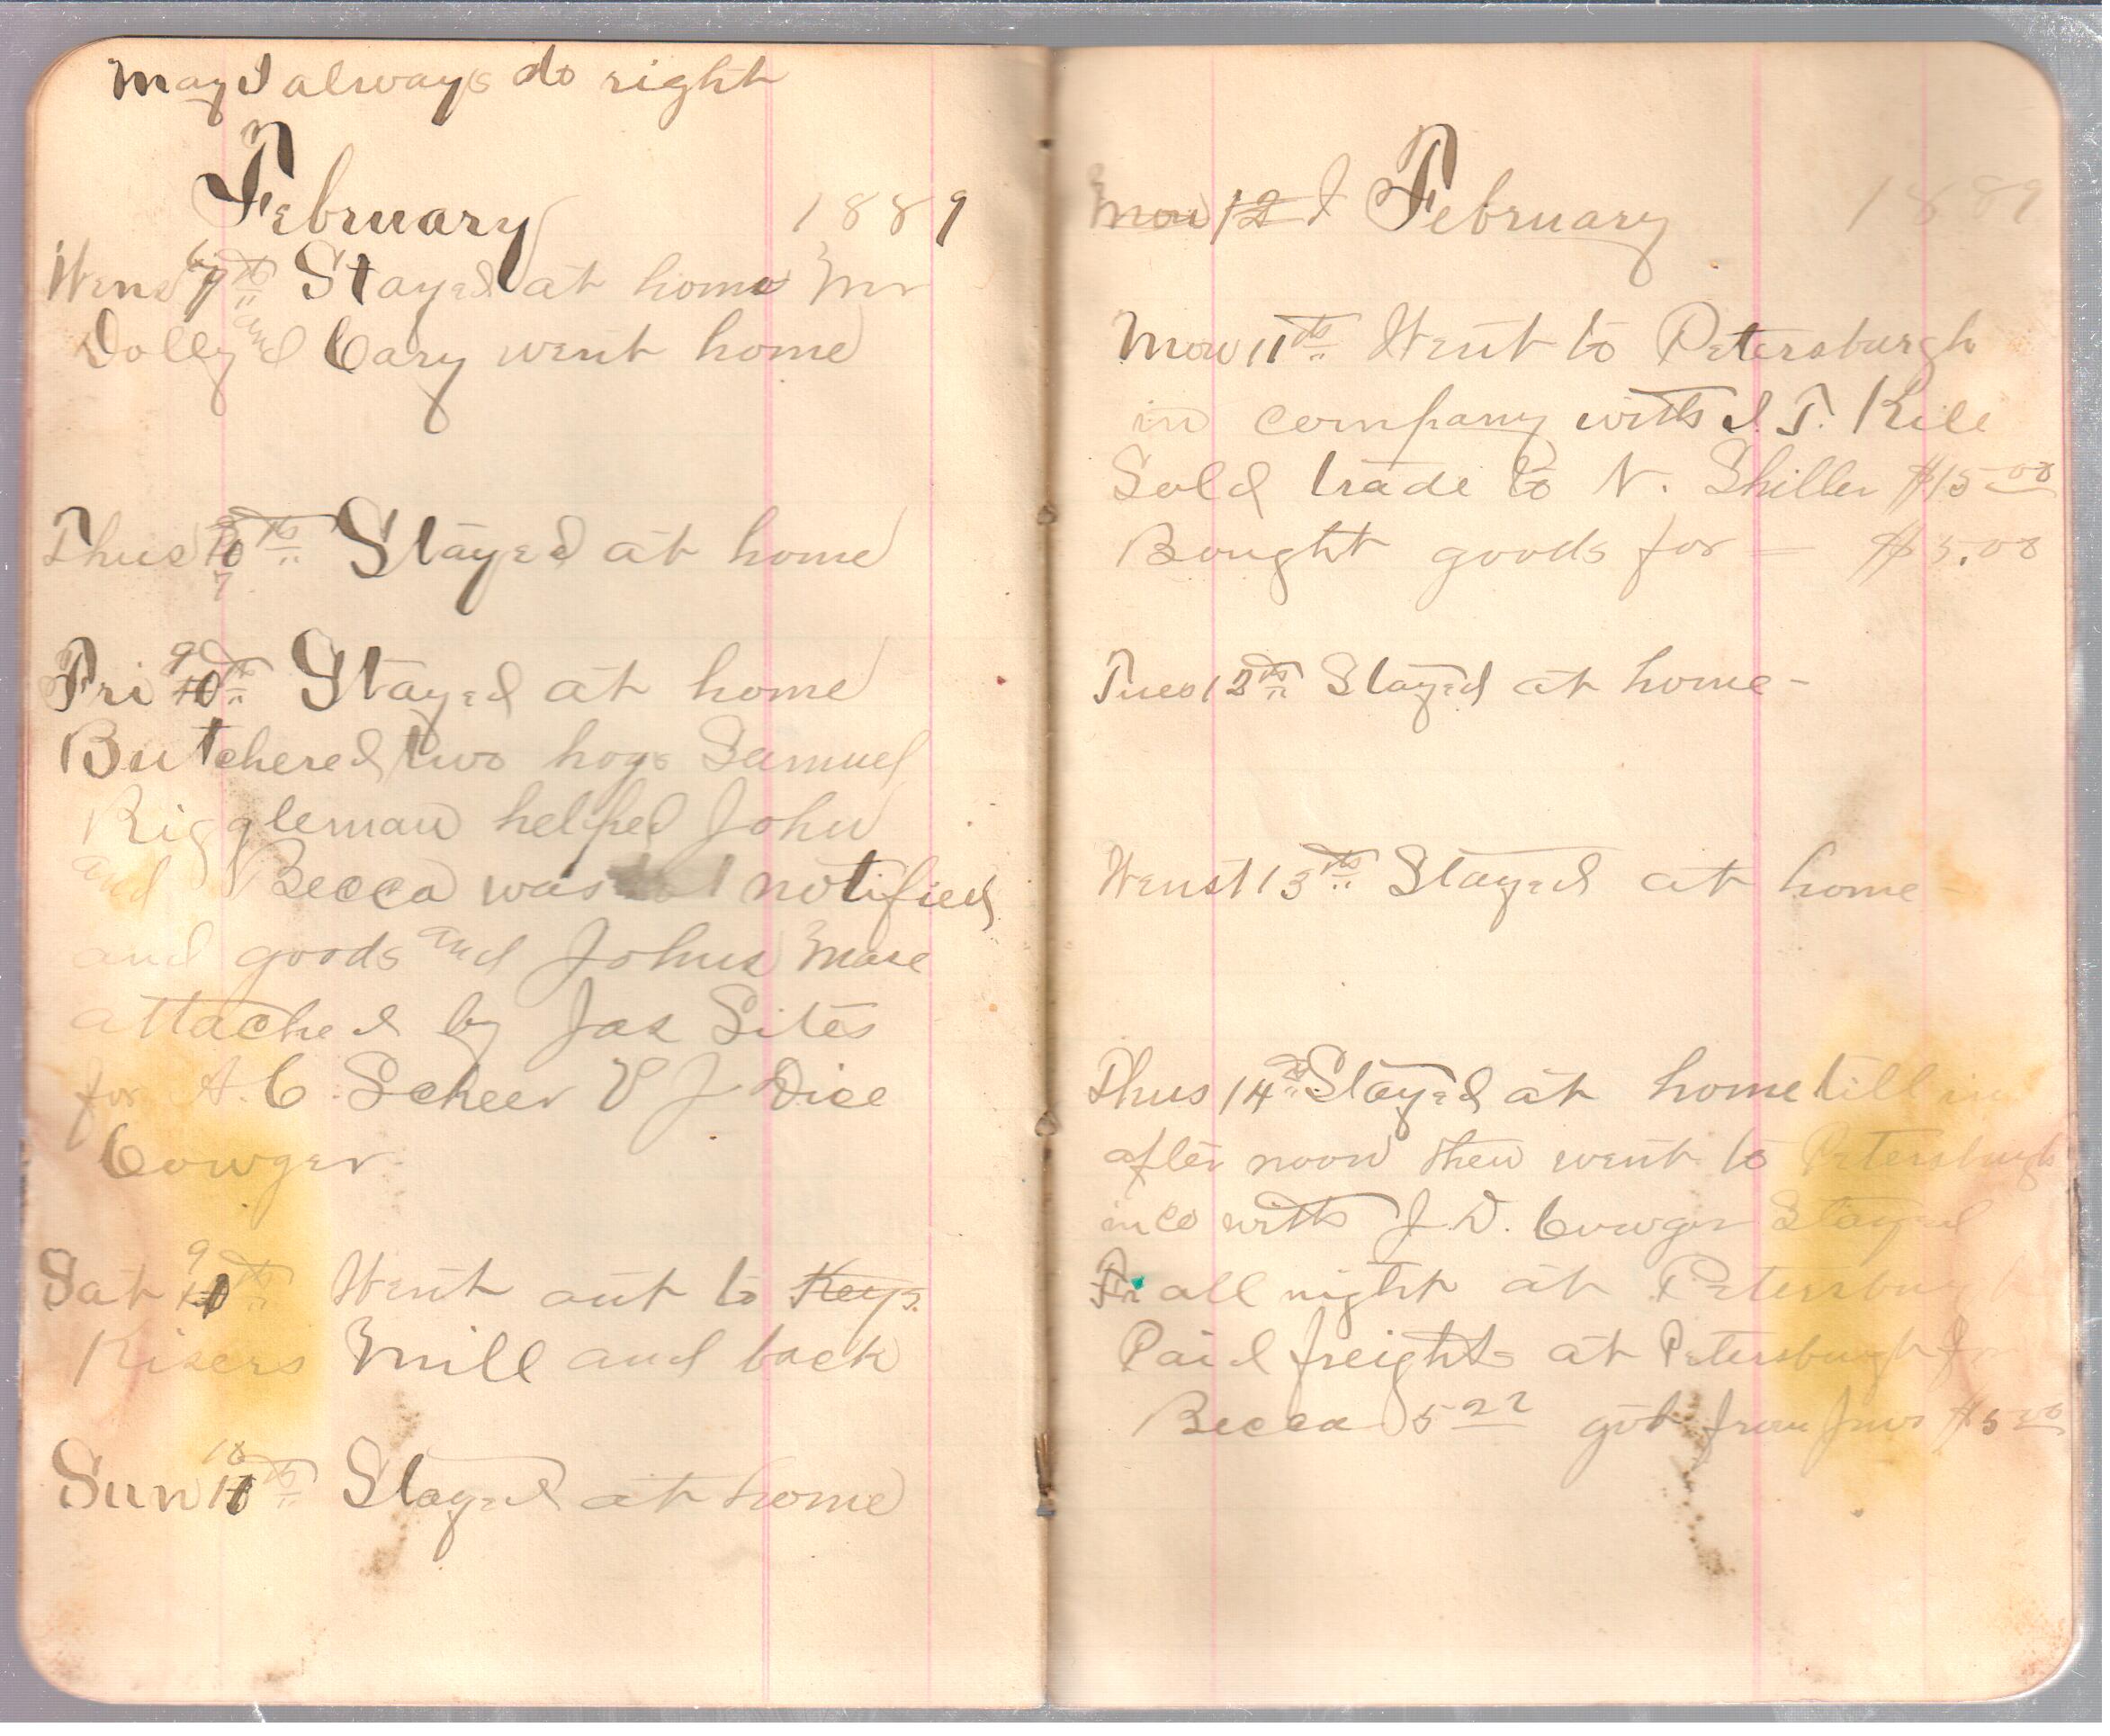 May I always do right
February 1889
Wens 6th Stayed at home Mr
Dolly and Cary went home
Thus Stayed at home
Fri Stayed at home
Butchered two hogs Samuel
Riggleman helped John
and Becca was notified
and goods and Johns Mare
attached by Jas Sites
for A. C. Scheer V J Dice
Cowger
Sat 9th Went out to Keys
Kisers Mill and back
Sun 10th Stayed at home
Mon 12 I February 1889
Mon 11th Went to Petersburgh
in company with I. T. Kile
Sold trade to N. Shiller $15.00
Bought goods for — $5.00
Tues 12th Stayed at home -
Wenst 13th Stayed at home
Thus 14th Stayed at home till in
after noon then went to Petersburgh
in co with J. D. Cowger Stayed
Fr all night at Petersburgh
Paid freight at Petersburgh for
Becca 5 22 got from Jno $5 00